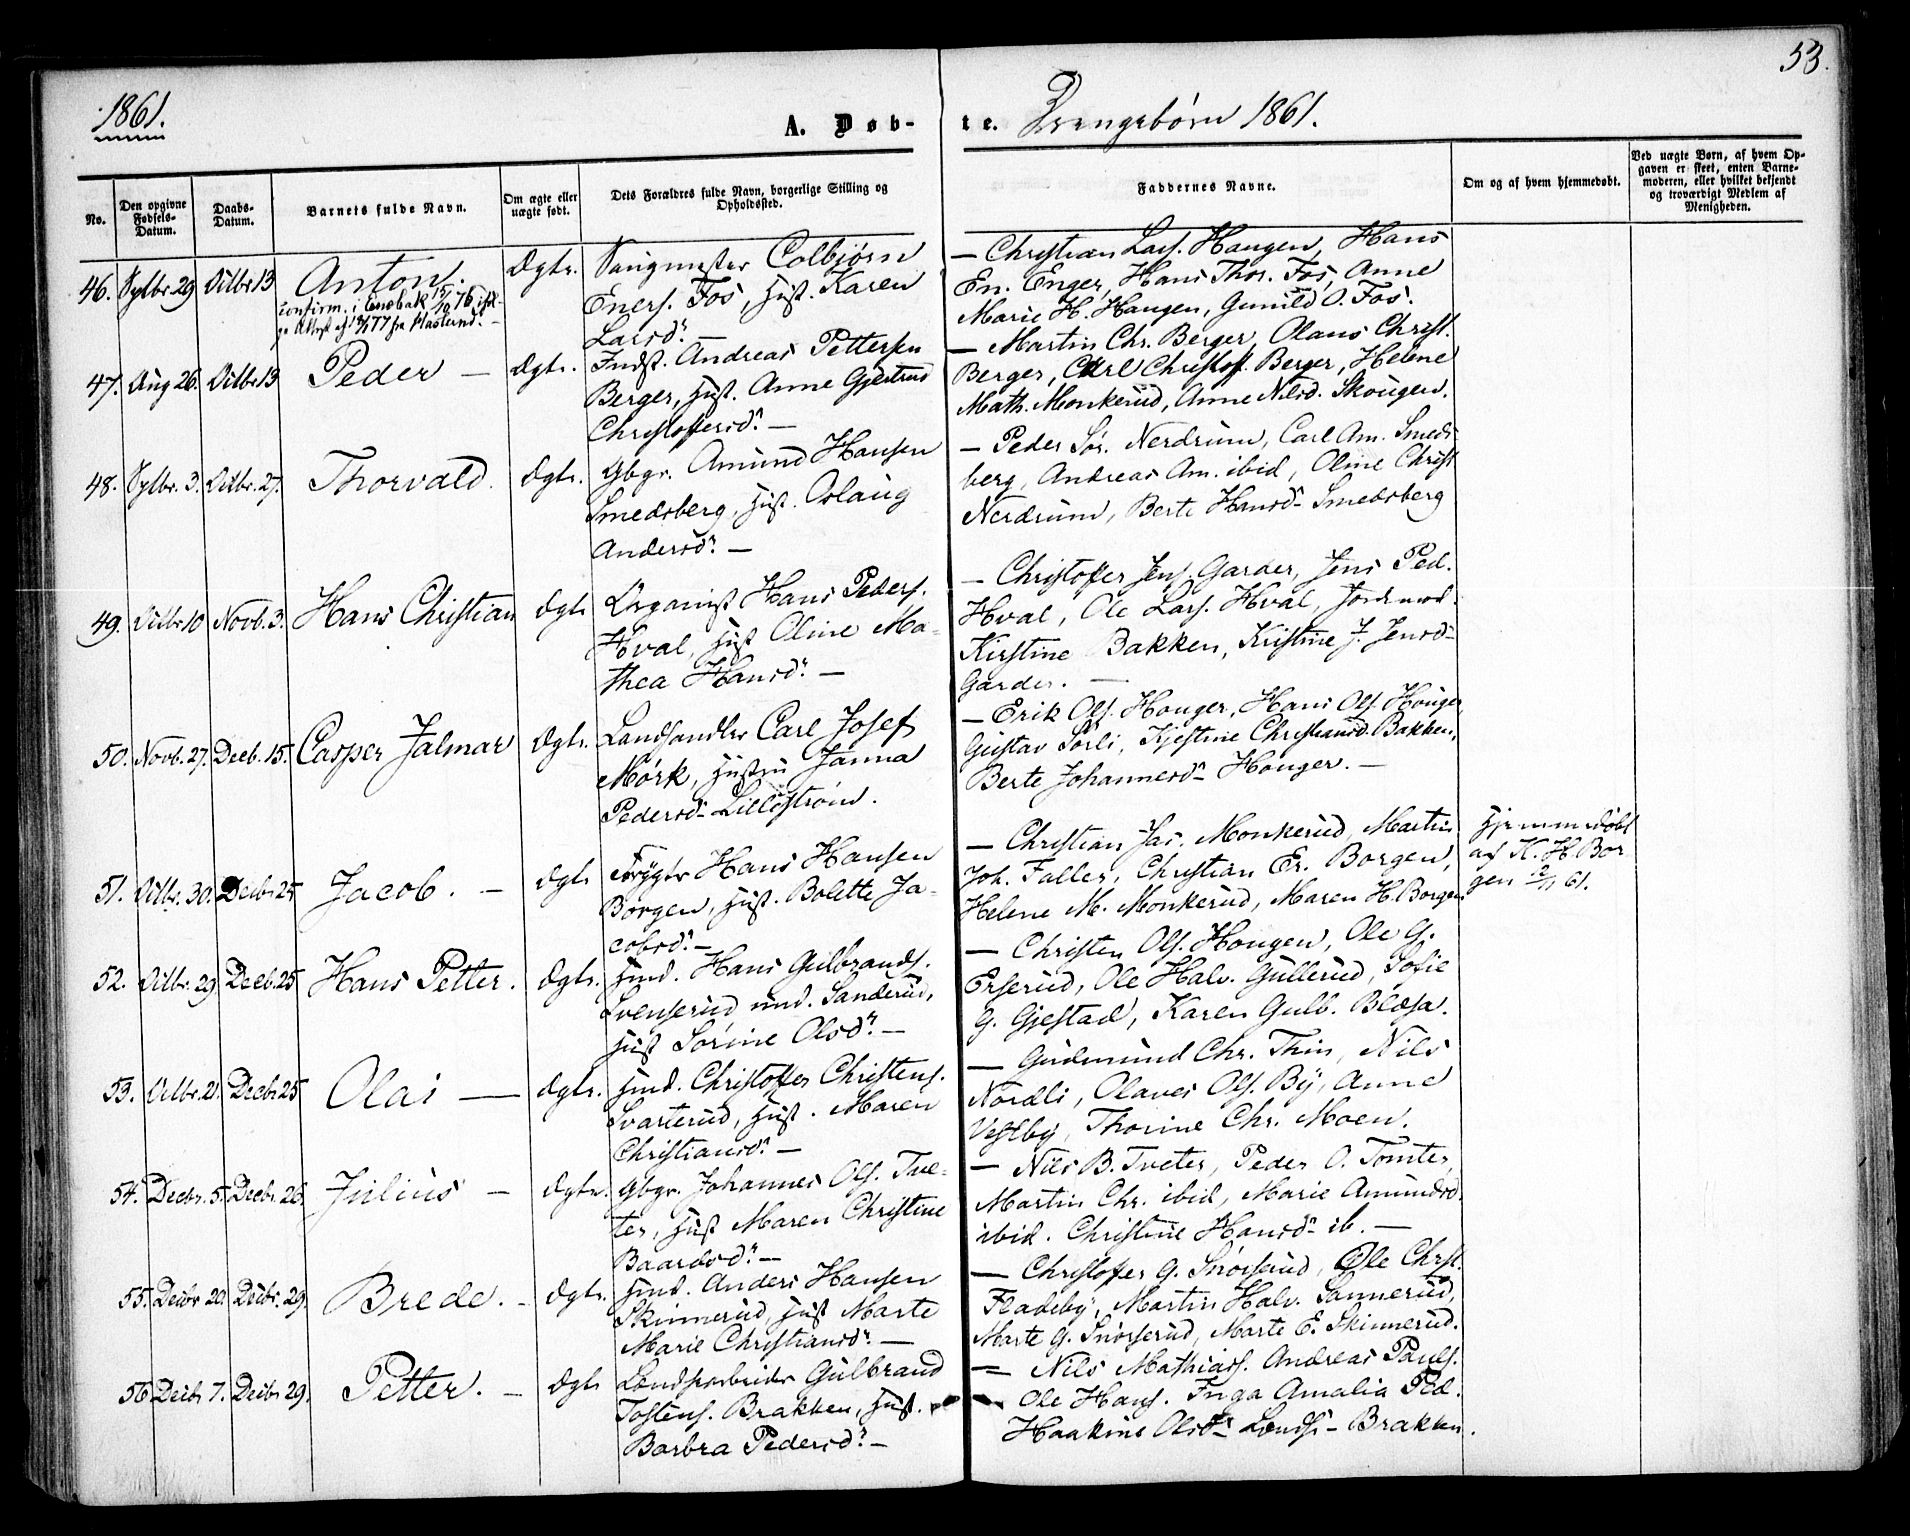 53.
1861.
A. Døb-
te. Drengebørn 1861.
No.
Den opgivne Fødsels-Datum.
Daabs-Datum.
Barnets fulde Navn.
Om ægte eller uægte født.
Dets Forældres fulde Navn, borgerlige Stilling og Opholdssted.
Faddernes Navne.
Om og af hvem hjemmedøbt.
Ved uægte Børn, af hvem Opgaven er skeet, enten Barnemoderen, eller hvilket bekjendt og troværdigt Medlem af Menigheden.
46. Sptbr 29 Octbr 13 Anton. Ægte. Sangmester Colbjørn
confirm. i Enebak 15/10 76
Eners. Fos, Hust. Karen
Larsd.
— Christian Lars. Haugen, Hans
En. Enger, Hans Thor. Fos, Anne
Marie H. Haugen, Gunild O. Fos.
47. Aug 26. Octbr 13 Peder — Ægte. Indst. Andreas Pettersen
Berger, Hust. Anne Gjertrud
Christoffersd. —
— Martin Chr. Berger, Olaus Christ.
Berger, Carl Christoff. Berger, Helene
Math. Monkerud, Anne Nilsd. Skougen.
48. Sptbr. 3. Octbr. 27. Thorvald. Ægte. Gbgr. Amund Hansen
Smedsberg, Hust. Aslaug
Andersd. —
— Peder Sør. Nerdrum, Carl Am. Smeds
berg, Andreas Am. ibid, Oline Christ
Nerdrum, Berte Hansd. Smedsberg
49. Octbr 10 Novb. 3. Hans Christian Ægte Organist Hans Peders.
Hval, Hust Oline Ma-
thea Hansd. —
— Christoffer Jens. Garder, Jens Ped.
Hval, Ole Lars. Hval, Jordmod.
Kirstine Bakken, Kristine J. Jensd.
Garder. —
50. Novb. 27. Decb. 15. Casper Jalmar Ægte. Landhandler Carl Josef
Mørk, Hustru Janna
Pedersd. Lillestrøm.
— Erik Ols. Houger, Hans Ols. Houger
Gustav Sørli, Kjestine Christiansd. Bakken,
Berte Johannesd. Houger. —
51. Octbr. 30. Decbr 25 Jacob. — Ægte Hans Hansen
Borgen, Hust. Bolette Ja-
cobsd. —
— Christian Jac. Monkerud, Martin
Joh. Faller, Christian Er. Borgen,
Helene M. Monkerud, Maren H. Borgen
Hjemmedøbt
af K. H. Bor
gen 61.
52. Octbr. 29 Decb. 25 Hans Petter. Ægte. Hmd. Hans Gulbrands.
Svenserud und. Sanderud,
Hust Sørine Olsd. —
— Christen Ols. Hougen, Ole G.
Erserud, Ole Halv. Gullerud, Sofie
G. Gjestad, Karen Gulb. Blæsa.
53. Octbr. 21. Decbr 25 Olai — Ægte. Hmd. Christoffer Christens.
Svarterud, Hust. Maren
Christiansd. —
— Gudmund Chr. Thin, Nils
Nordli, Olaves Ols. By, Anne
Vestby, Thorine Chr. Moen.
54. Decbr. 5. Decbr. 26 Julius — Ægte. Gbgr. Johannes Ols. Tve-
ter, Hust Maren Christine
Baardsd. —
— Nils B. Tveter, Peder O. Tomter,
Martin Chr. ibid, Marie Amundsd.
ibid. Christine Hansd. ib. —
55. Decbr 20. Decbr. 29. Brede. — Ægte. Hmd. Anders Hansen
Skinnerud, Hust Marte
Marie Christiansd. —
— Christoffer G. Snørserud, Ole Christ.
Fladeby, Martin Halv. Sannerud,
Marte G. Snørserud, Marte E. Skinnerud.
56 Decbr 7. Decbr 29. Petter. — Ægte Gulbrand
Tostens. Brakken, Hust.
Barbra Pedersd. —
— Nils Mathiass. Andreas Pauls.
Ole Hans. Inga Amalia Ped.
Haakine Olsd. Brakken.